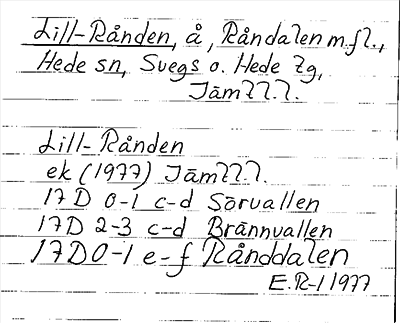 Lill-Rånden, å, Råndalen m.fl.,
Hede sn, Svegs o. Hede tg,
Jämtl.l.
Lill-Rånden
ek (1977) Jämtl.l.
17 D 0-1 c-d Sörvallen
17D 2-3 c-d Brännvallen
17D 0-1 e-f Rånddalen
E.R-l 1977